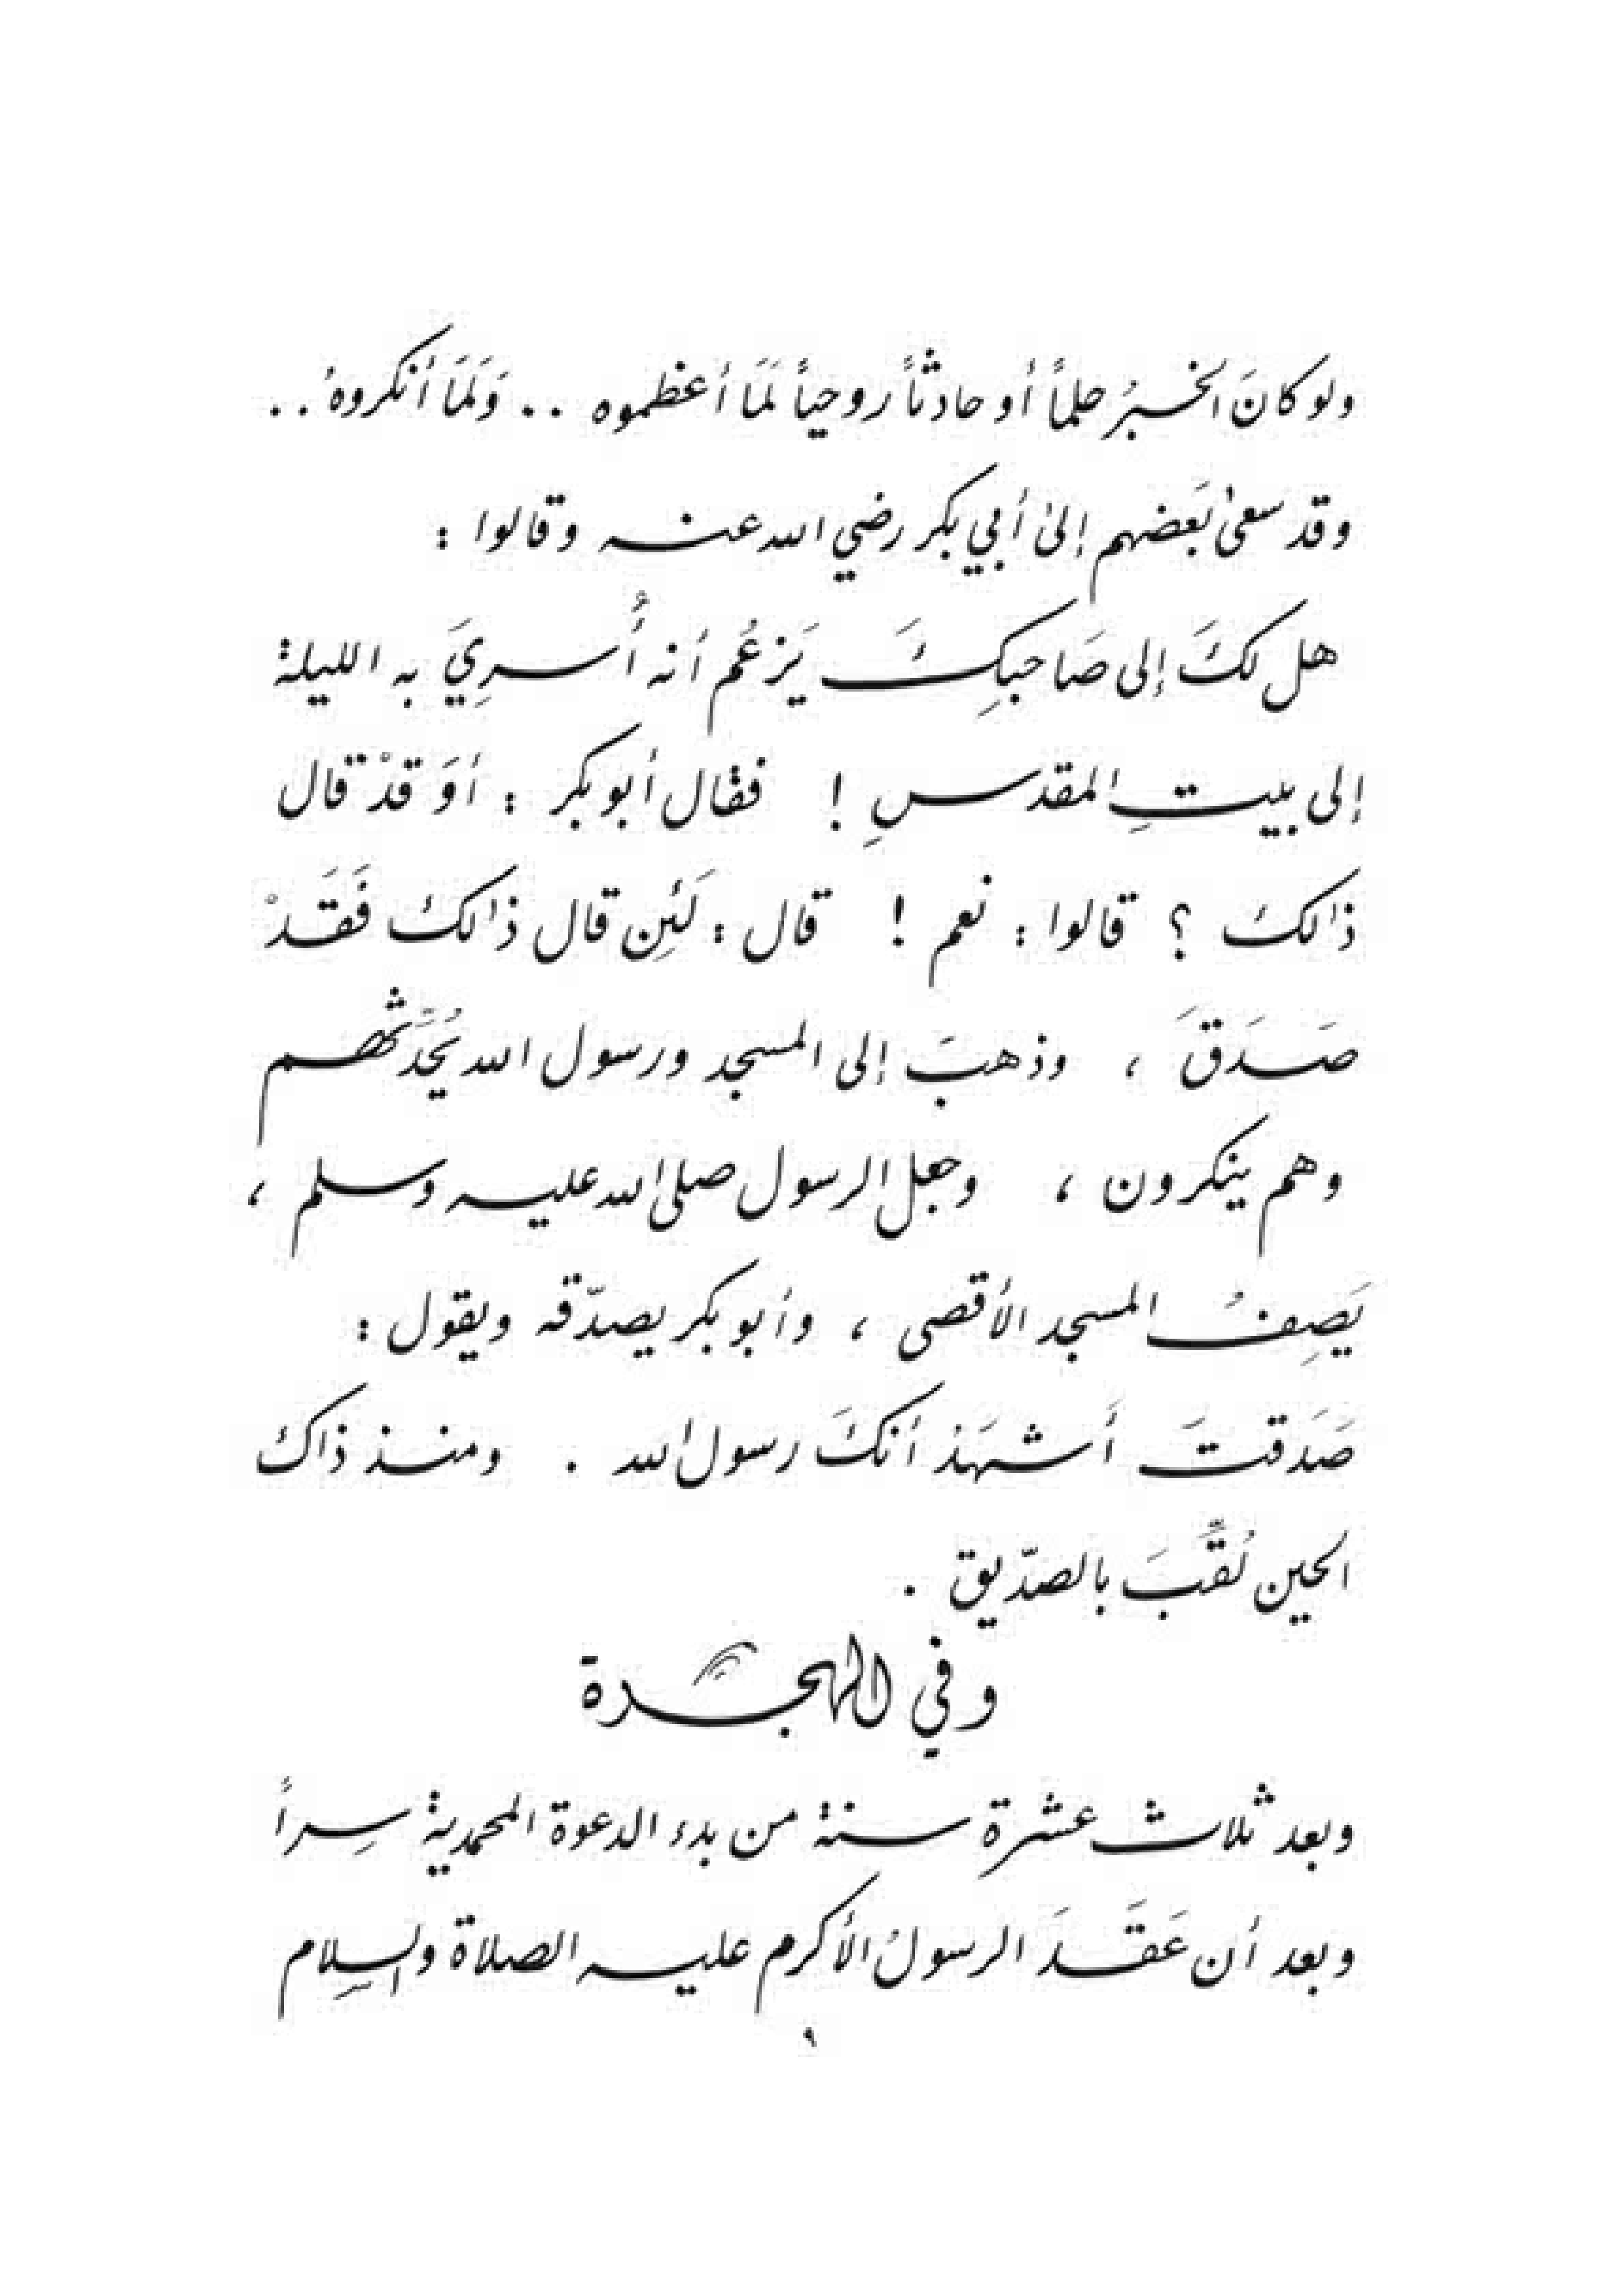 ولو كانَ الخبرُ حلماً أو حادثاً روحياً لَمَا أعظموه .. وَلَمَا أنكروهُ ..
وقد سعىٰ بَعضهم إلىٰ أبي بكر رضي الله عنه وقالوا :
هل لكَ إلى صَاحبِكَ يَزعُم أنه أُسرِيَ به الليلة
إلى بيتِ المقدسِ ! فقال أبو بكر : أوَ قدْ قال
ذالك ؟ قالوا : نعم ! قال : لَئِن قال ذالك فَقَدْ
صَدَقَ ، وذهبَ إلى المسجد ورسول الله يُحَدِّثهم
وهم ينكرون ، وجعل الرسول صلى الله عليه وسلم ،
يَصِفُ المسجد الأقصى ، وأبو بكر يصدّقه ويقول :
صَدَقتَ أَشهَد أنكَ رسول الله . ومنذ ذاك
الحين لُقِّبَ بالصدّيق .
وفي الهجرة
وبعد ثلاث عشرة سنة من بدء الدعوة المحمدية سِراً
وبعد أن عَقَدَ الرسولُ الأكرم عليه الصلاة والسلام
٩